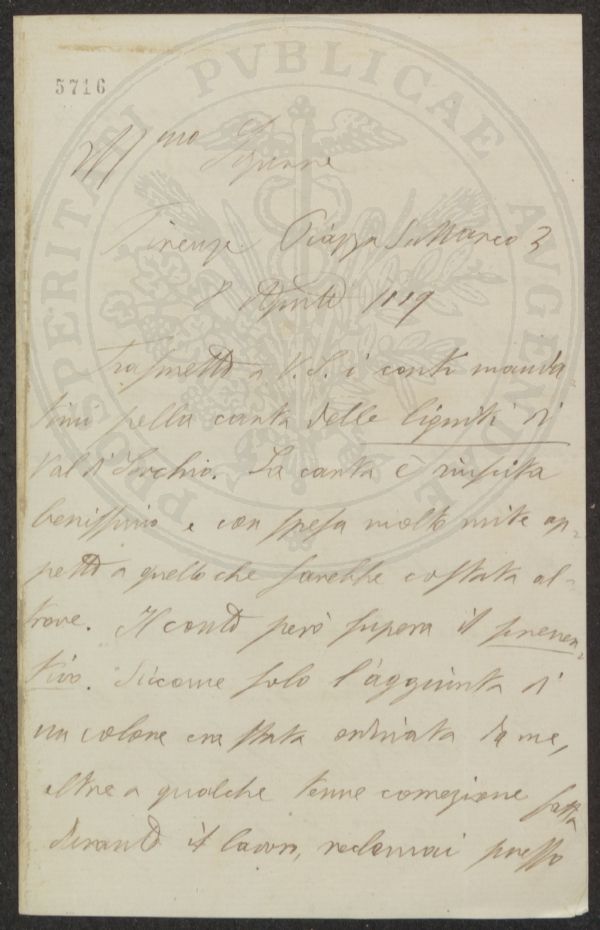 PROSPERITATI PVBLICAE AVGENDAE
5716
Ill.mo Signore
Firenze Piazza S. Marco 3
8 Aprile 1889
Trasmetto a V. S. i conti manda
timi pella carta delle ligniti di
Val di Serchio. La carta è riuscita
benissimo e con spesa molto mite ap-
petto a quello che sarebbe costata al-
trove. Il conto però supera il preven-
tivo. Siccome solo l'aggiunta di
un colore era stata ordinata da me,
oltre a qualche tenue correzione fatta
durante il lavoro, reclamai presso